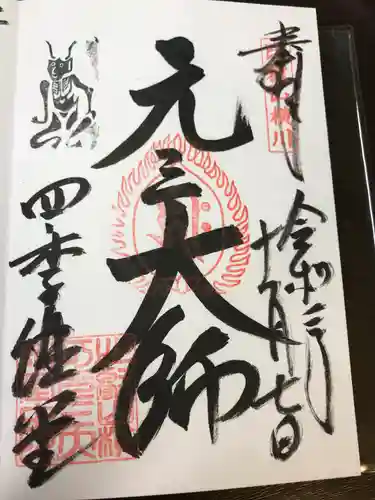 奉拝
令和三年
十一月七日
元三大師
四季講堂